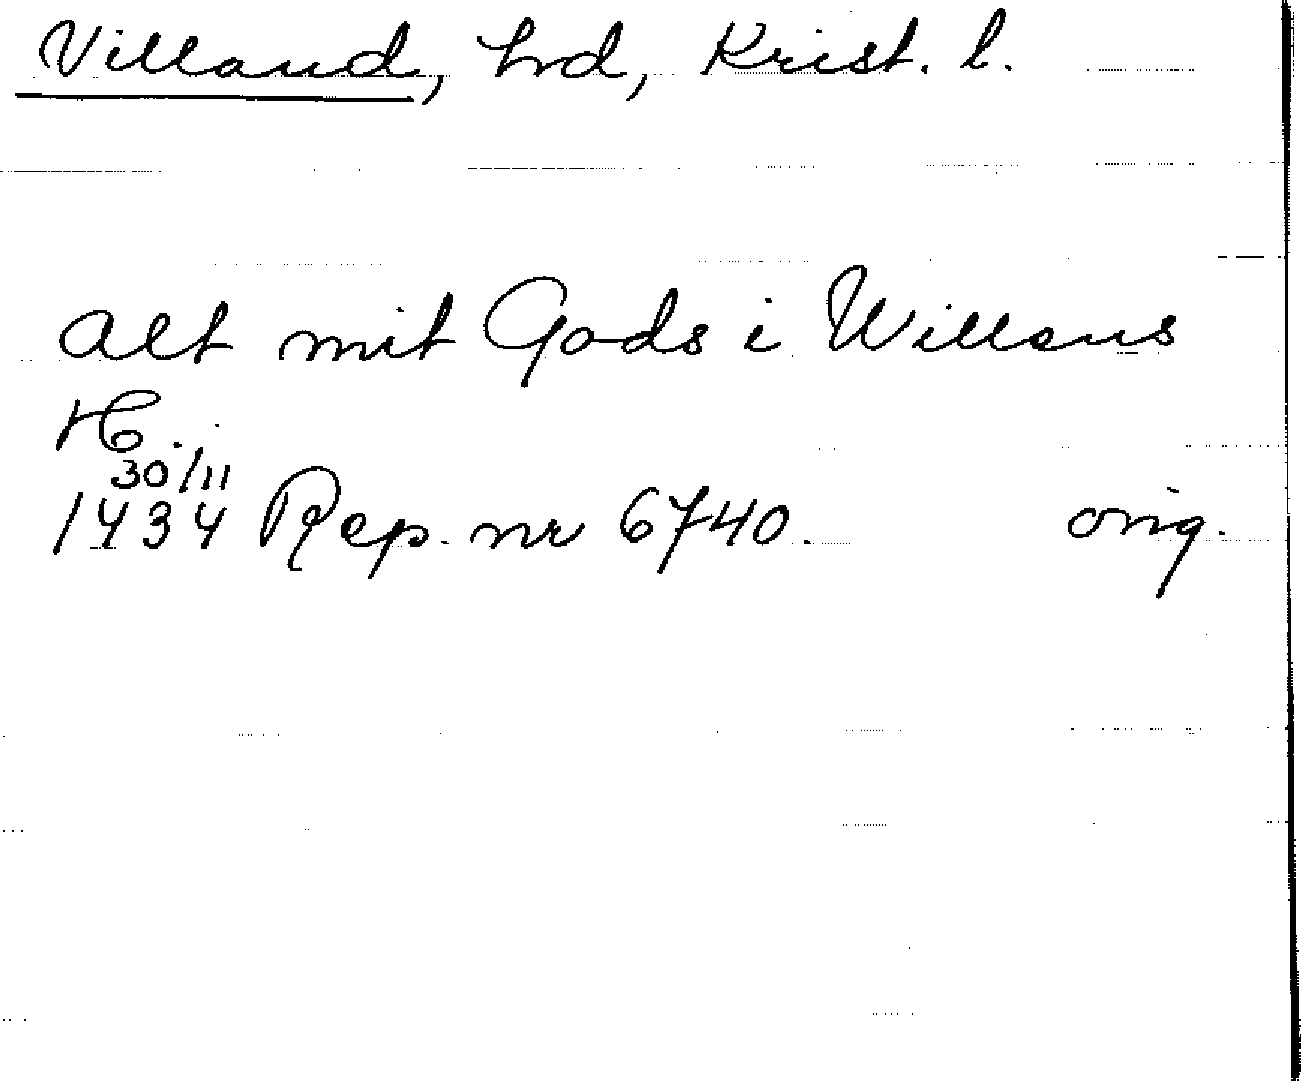 Villand, hrd, Krist. l.
alt mit Gods i Willans
H.
30/11
1434 Rep. nr 6740. orig.